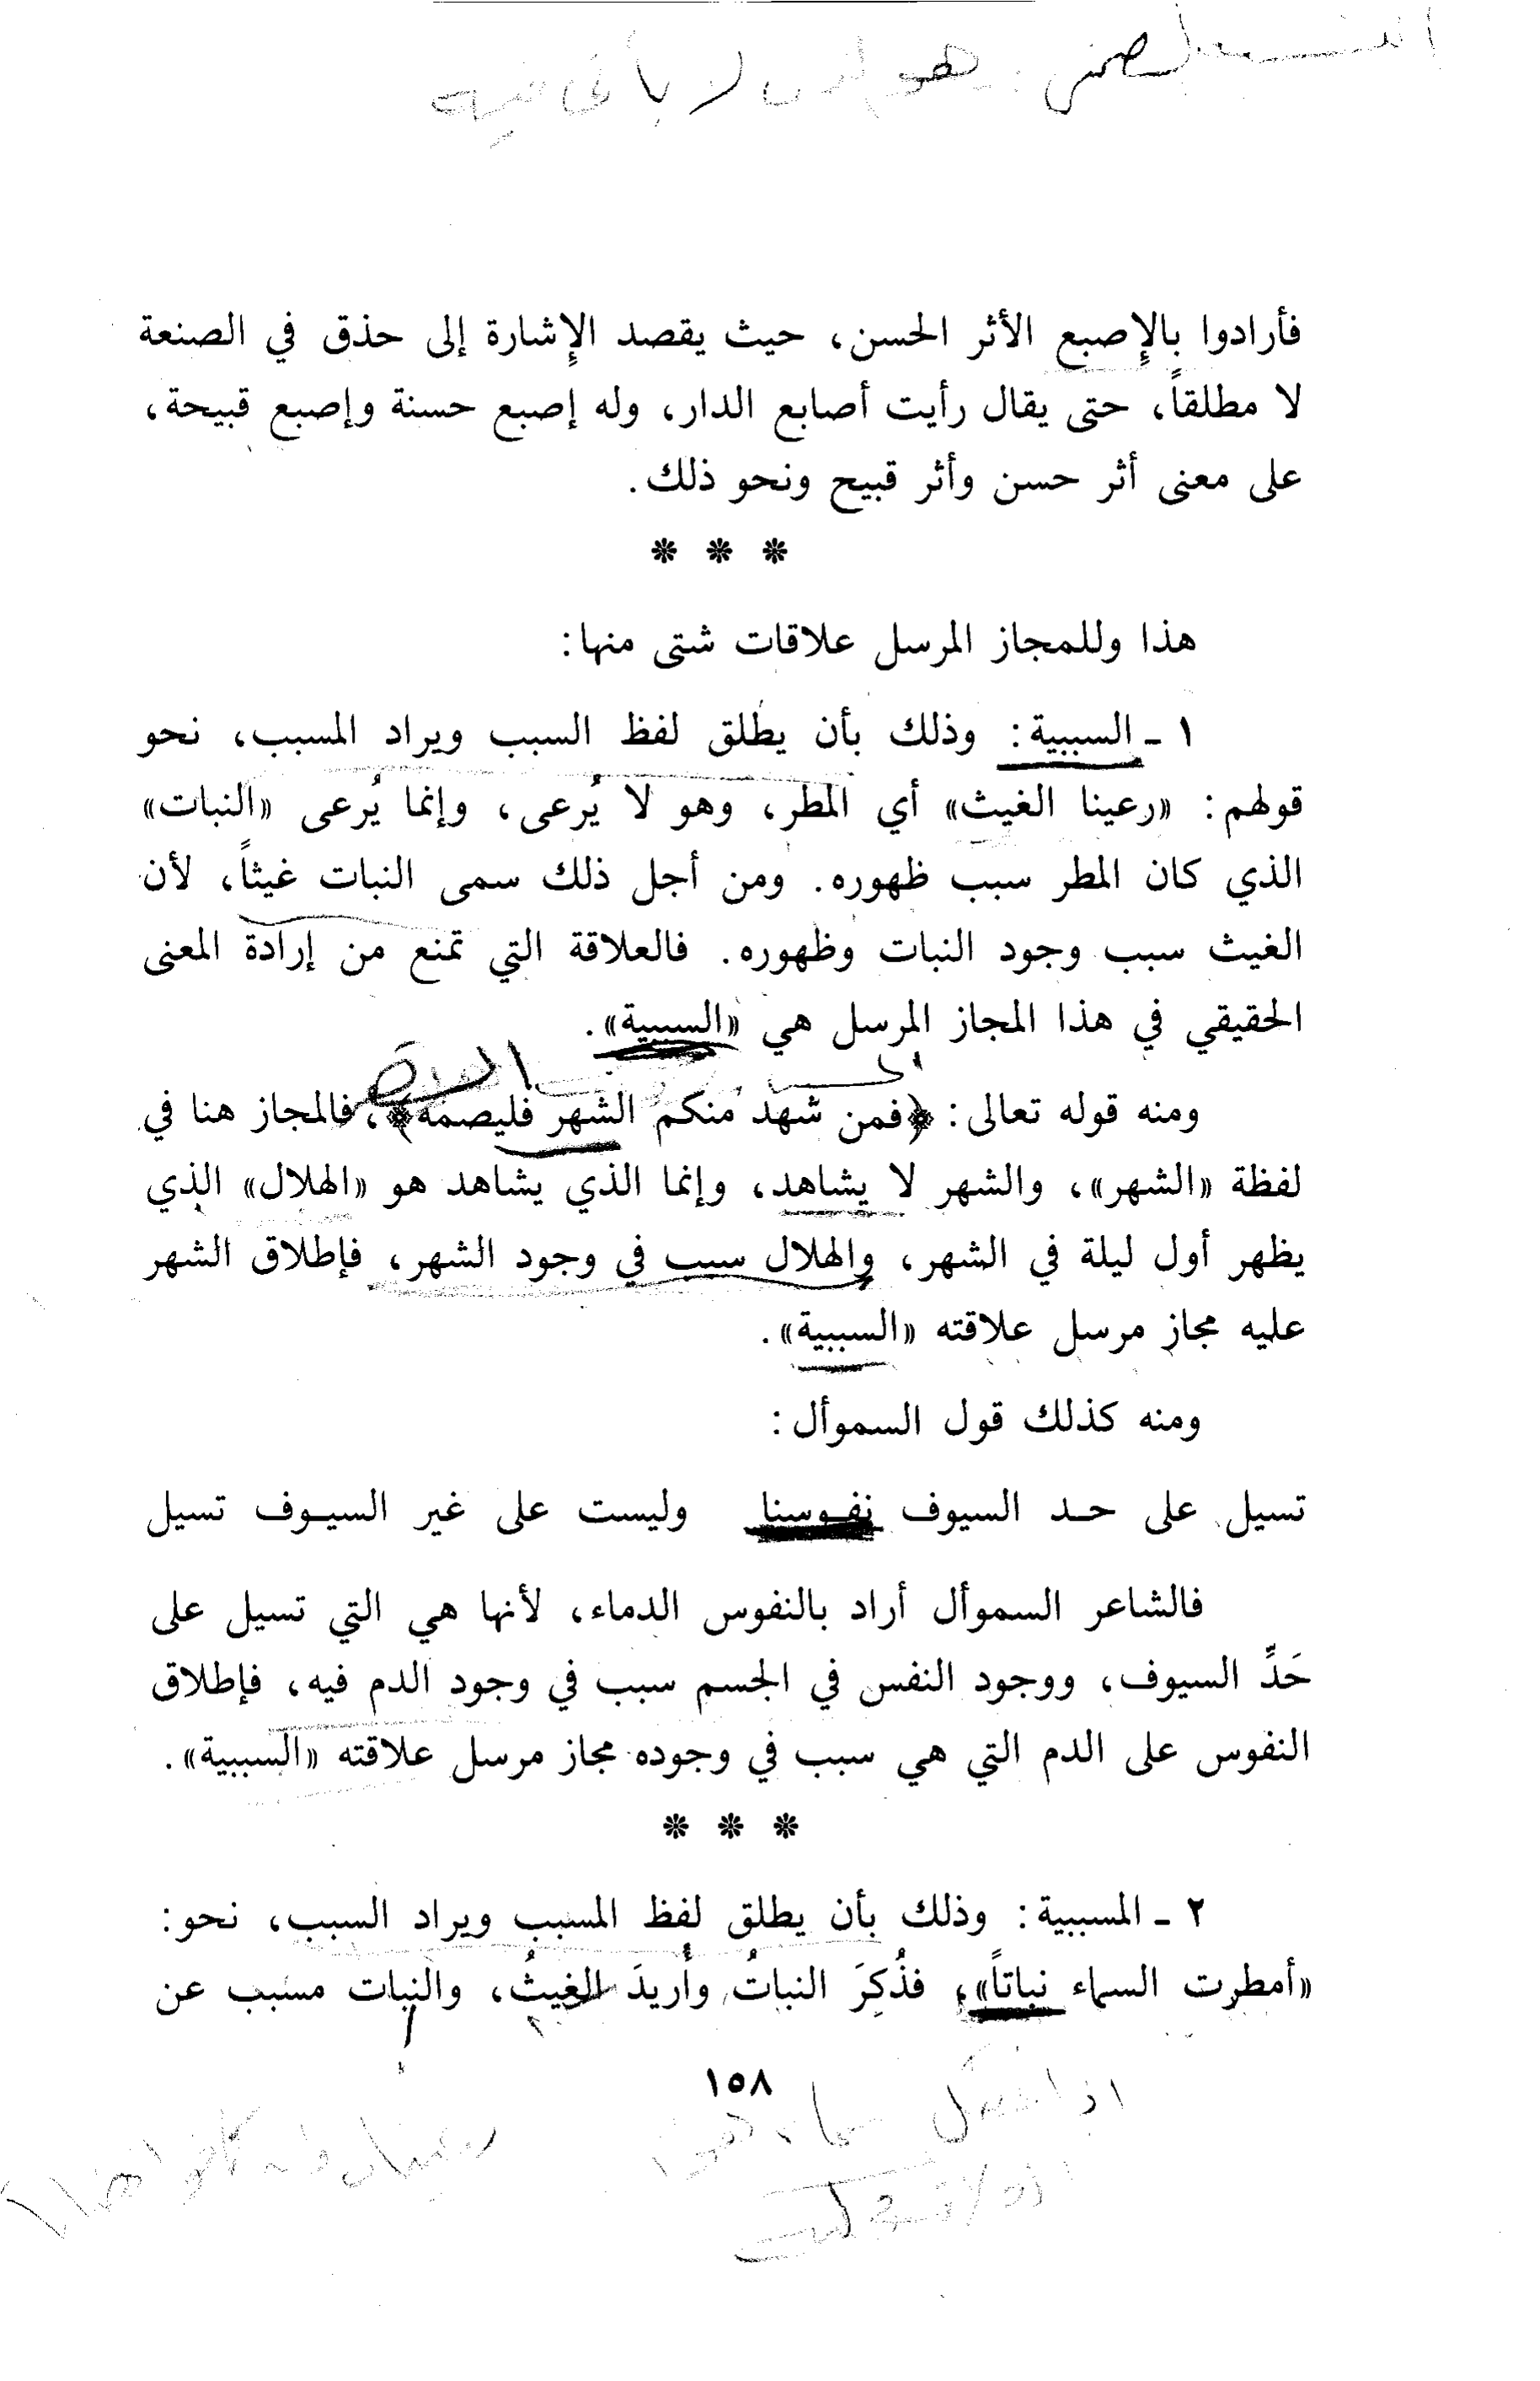 فأرادوا بالإصبع الأثر الحسن، حيث يقصد الإشارة إلى حذق في الصنعة
لا مطلقاً، حتى يقال رأيت أصابع الدار، وله إصبع حسنة وإصبع قبيحة،
على معنى أثر حسن وأثر قبيح ونحو ذلك.
* * *
هذا وللمجاز المرسل علاقات شتى منها:
١ ـ السببية: وذلك بأن يطلق لفظ السبب ويراد المسبب، نحو
قولهم: «رعينا الغيث» أي المطر، وهو لا يُرعى، وإنما يُرعى «النبات»
الذي كان المطر سبب ظهوره. ومن أجل ذلك سمى النبات غيثاً، لأن
الغيث سبب وجود النبات وظهوره. فالعلاقة التي تمنع من إرادة المعنى
الحقيقي في هذا المجاز المرسل هي «السببية».
ومنه قوله تعالى: ﴿فمن شهد منكم الشهر فليصمه﴾، فالمجاز هنا في
لفظة «الشهر»، والشهر لا يشاهد، وإنما الذي يشاهد هو «الهلال» الذي
يظهر أول ليلة في الشهر، والهلال سبب في وجود الشهر، فإطلاق الشهر
عليه مجاز مرسل علاقته «السببية».
ومنه كذلك قول السموأل:
تسيل على حـد السيوف نفـوسنا وليست على غير السيـوف تسيل
فالشاعر السموأل أراد بالنفوس الدماء، لأنها هي التي تسيل على
حَدِّ السيوف، ووجود النفس في الجسم سبب في وجود الدم فيه، فإطلاق
النفوس على الدم التي هي سبب في وجوده مجاز مرسل علاقته «السببية».
* * *
٢ ـ المسببية: وذلك بأن يطلق لفظ المسبب ويراد السبب، نحو:
«أمطرت السماء نباتاً»، فذُكِرَ النباتُ وأُريدَ الغيثُ، والنبات مسبب عن
١٥٨